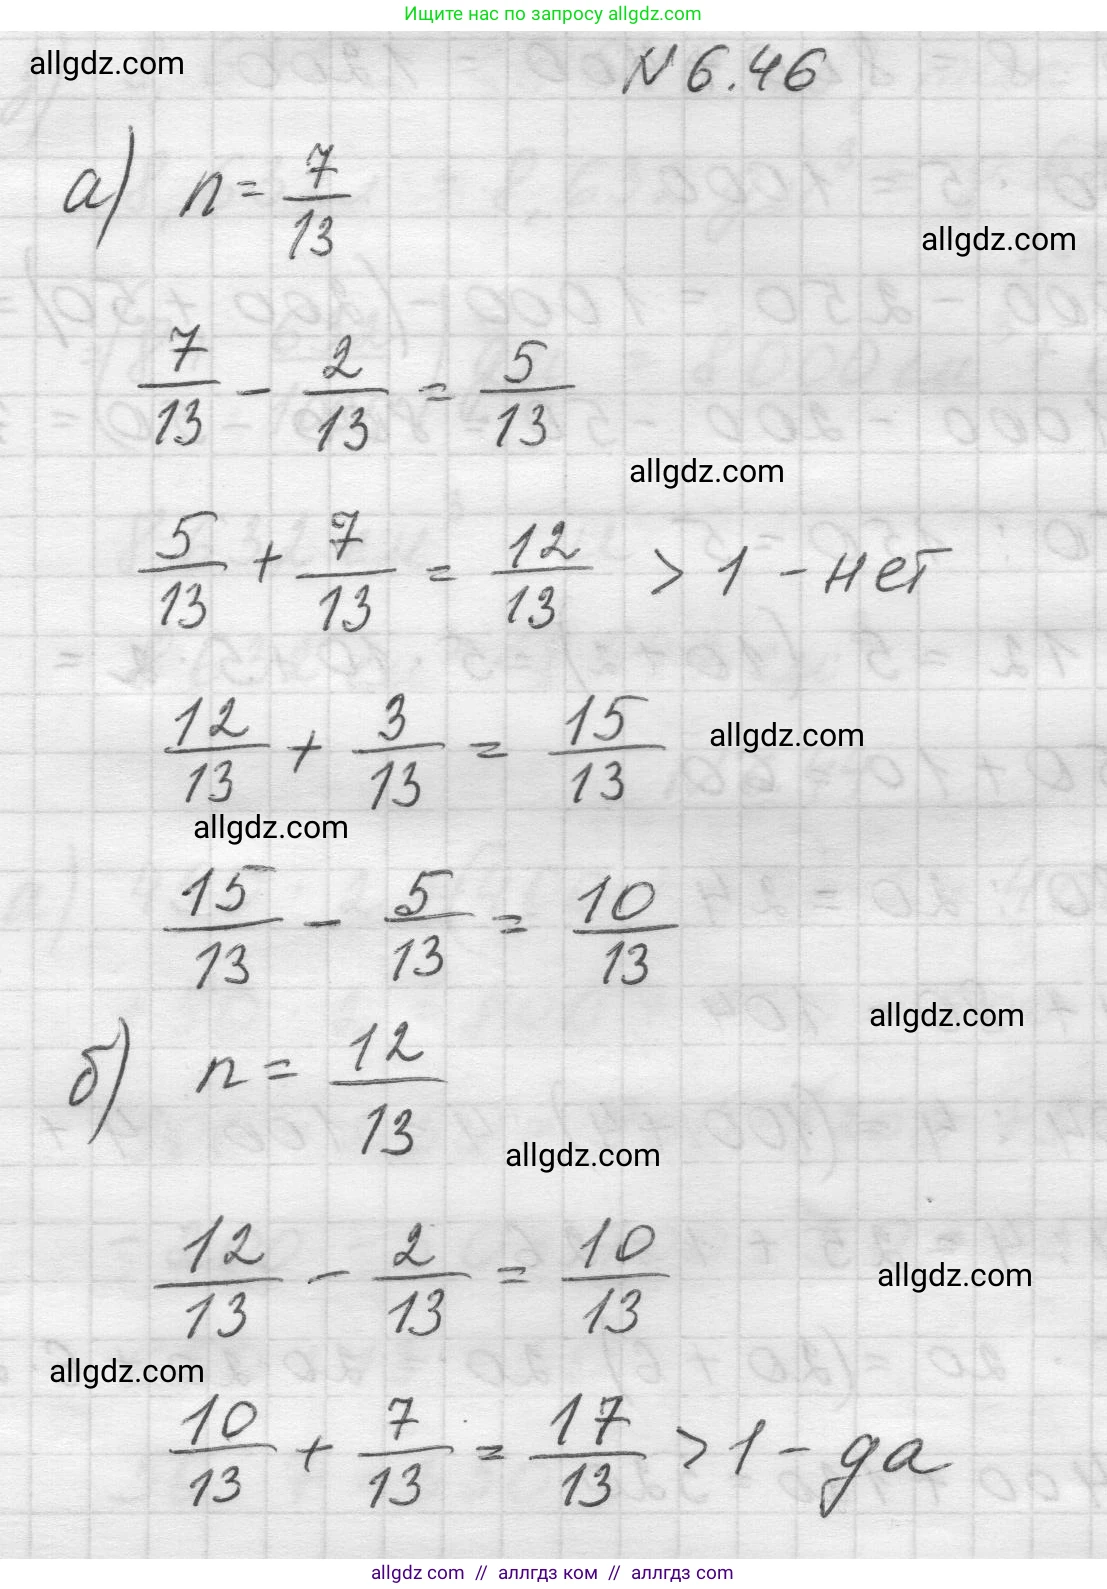 Ищите нас по запросу allgdz.com
allgdz.com
N 6.46
а) n = 7/13
allgdz.com
7/13 - 2/13 = 5/13
allgdz.com
5/13 + 7/13 = 12/13 > 1 - нет
12/13 + 3/13 = 15/13
allgdz.com
allgdz.com
15/13 - 5/13 = 10/13
allgdz.com
б) n = 12/13
allgdz.com
12/13 - 2/13 = 10/13
allgdz.com
allgdz.com
10/13 + 7/13 = 17/13 > 1 - да
allgdz.com // аллгдз ком // аллгдз.com